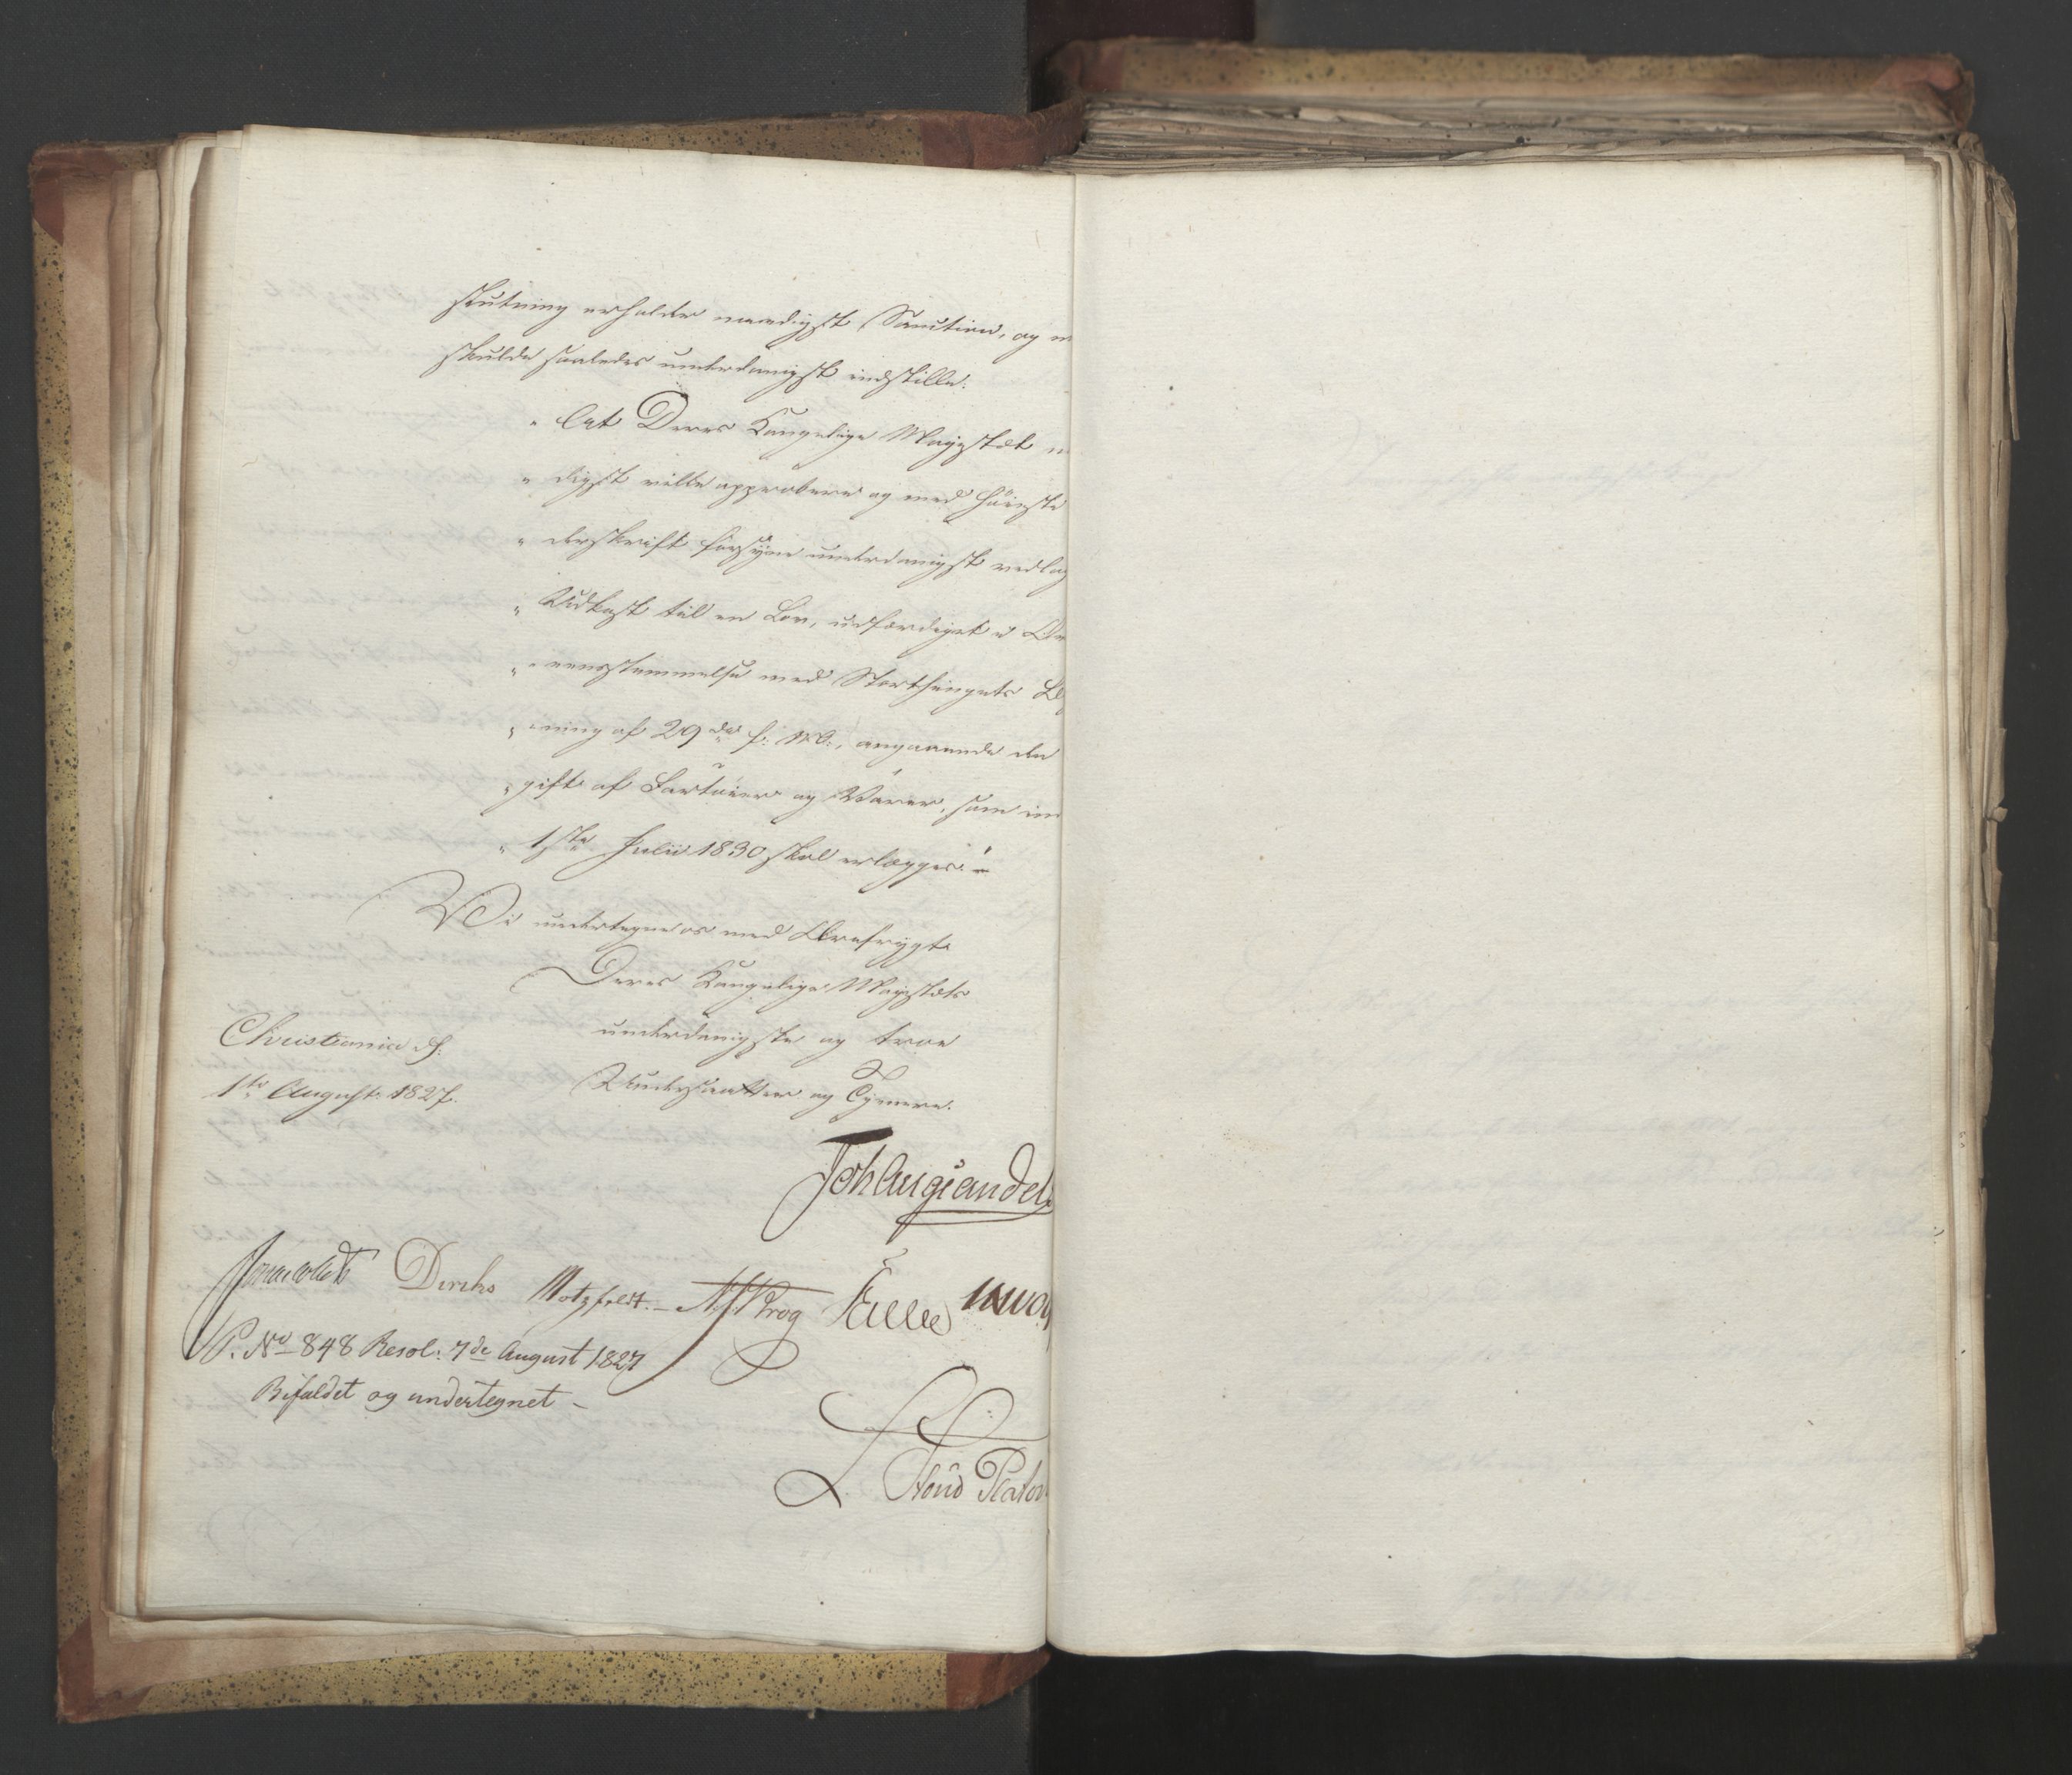 slutning erholder naadigst Sanction, og
skulde saaledes underdanigst indstille:
" "at Deres Kongelige Majestæt
" digst vilde approbere og med Høieste
" derskrift forsyne underdanigst vedlag
" Udkast til en Lov, udfærdiget i Ov
" eensstemmelse med Storthingets Be
" ning af 29de f. M., angaaende den
" gift af Fartøier og Varer, som in
" 1ste Julii 1830 skal erlægges." -
Vi undertegne os med Ærefrygt
Deres Kongelige Majestæts
underdanigste og troe
Undersaatter og Tjenere.
Christiania d:
1te August 1827.
Joh Aug Sandels
Jonas Collett Diriks Motzfeldt. - Krog Fasting
P. No 848 Resol: 7de August 1827
Bifaldet og undertegnet -
L. Stoud Platou